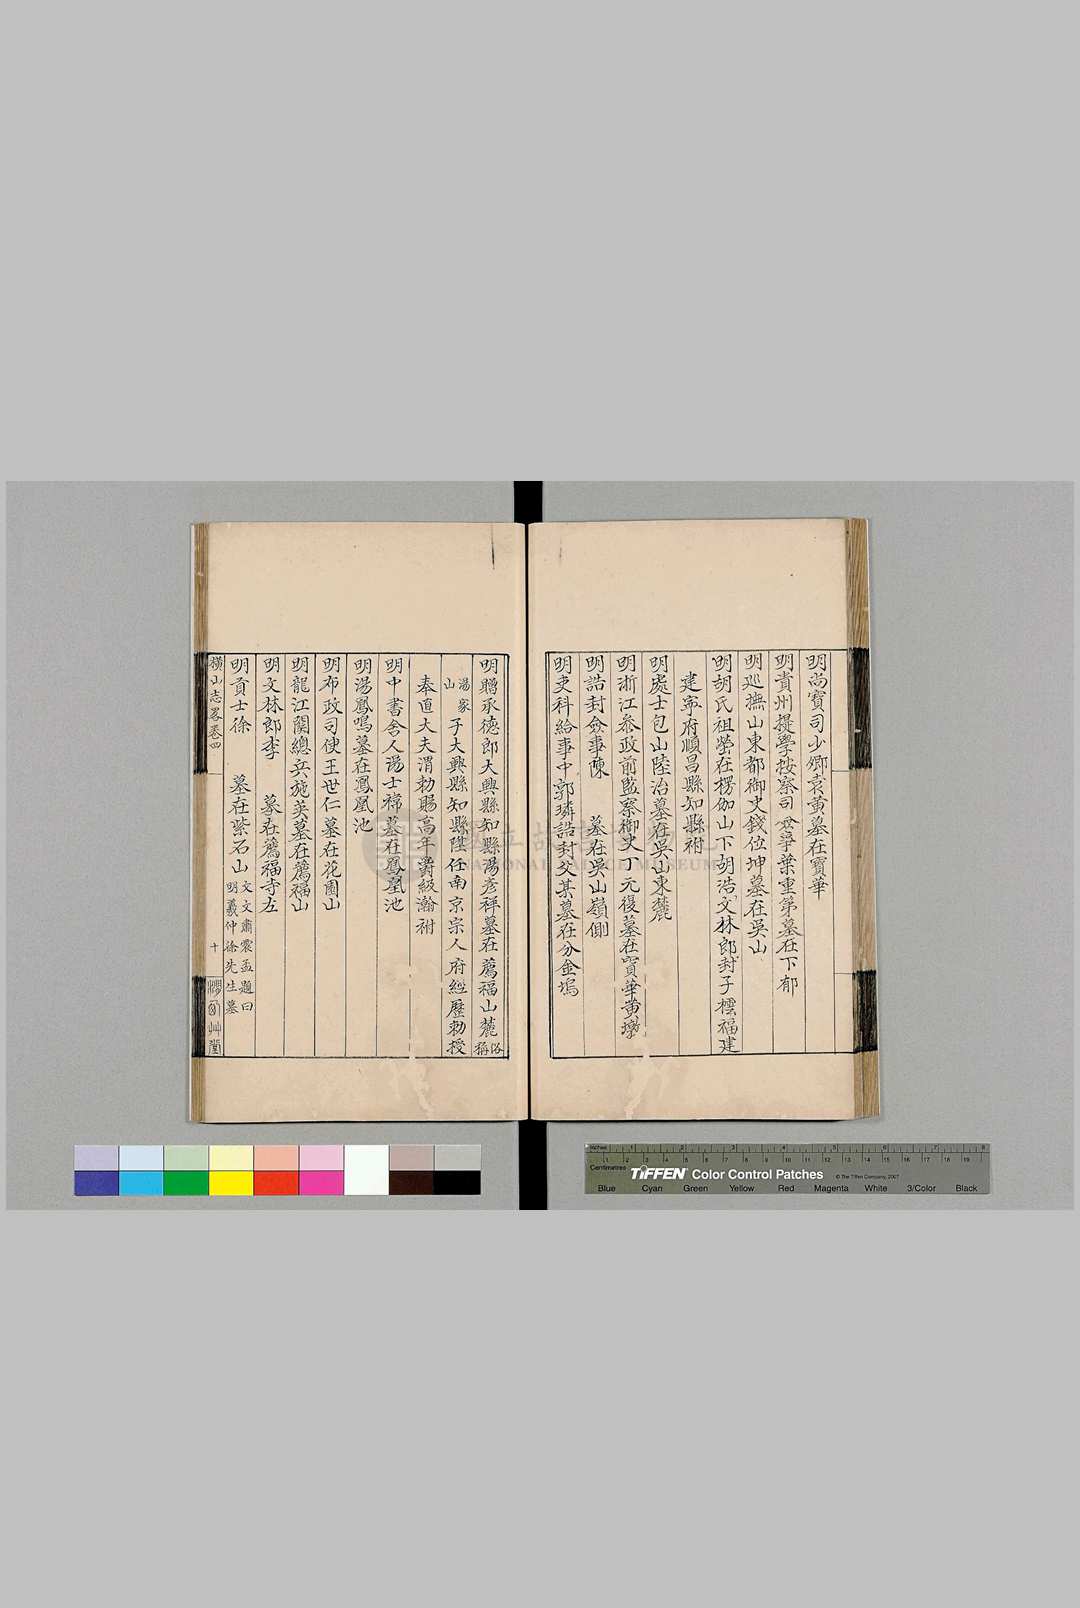 明尚寶司少卿袁黄墓在寶華
明貴州提學按察司 葉重第墓在下郁
明巡撫山東都御史錢位坤墓在吳山
明胡氏祖塋在楞伽山下胡浩文林郎封子櫄福建
建寧府順昌縣知縣祔
明處士包山陸治墓在吳山東麓
明浙江叅政前監察御史 元復墓在寶華黄墩
明誥封僉事陳 墓在吳山嶺側
明吏科給事中郭璘誥封父某墓在分金塢
明贈承德郎大興縣知縣湯彦祥墓在薦福山麓俗稱
湯家山子大興縣知縣陞任南京宗人府經歷勑授
奉直大夫渭勑賜高年爵級瀚祔
明中書舍人湯士 墓在鳳凰池
明湯鳳鳴墓在鳳凰池
明布政司使王世仁墓在花園山
明龍江關總兵施英墓在薦福山
明文林郎李 墓在薦福寺左
明貢士徐 墓在紫石山文文肅震孟題曰明義仲徐先生墓
橫山志畧卷四
十
艸堂
國立故宮博物院
NATIONAL PALACE MUSEUM
inches 1 2 3 4 5 6 7 8
Centimetres 1 2 3 4 5 6 7 8 9 10 11 12 13 14 15 16 17 18 19
TIFFEN Color Control Patches © The Tiffen Company, 2007
Blue Cyan Green Yellow Red Magenta White 3/Color Black